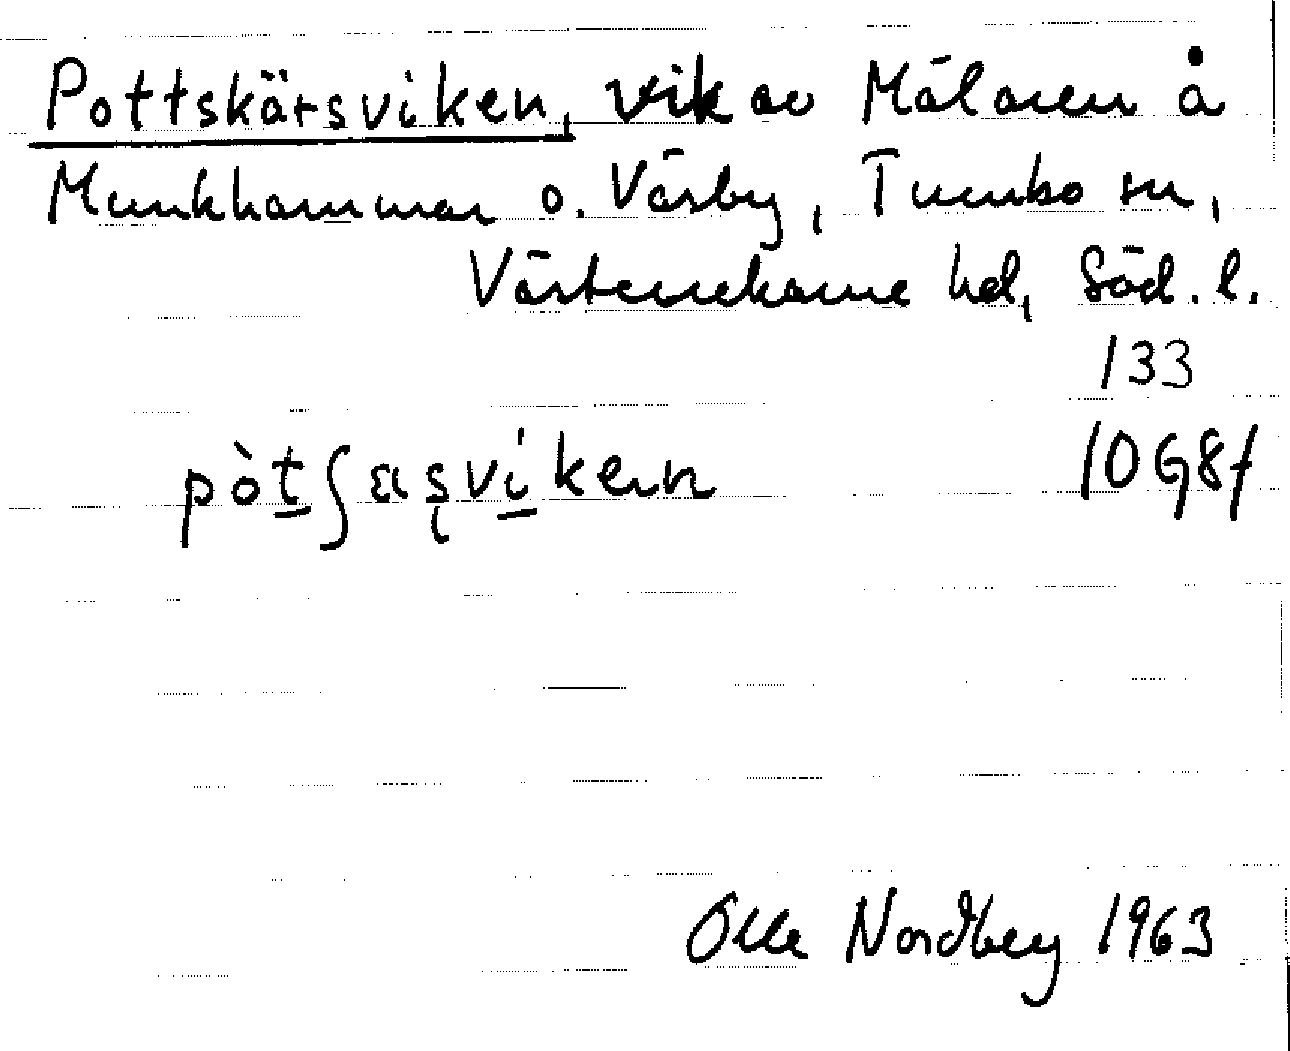 Pottskärsviken, vik av Mälaren å
Munkhammar o. Väsby, Tumbo sn,
Västerrekarne hd, Söd. l.
133
10G8f
Olle Nordberg 1963